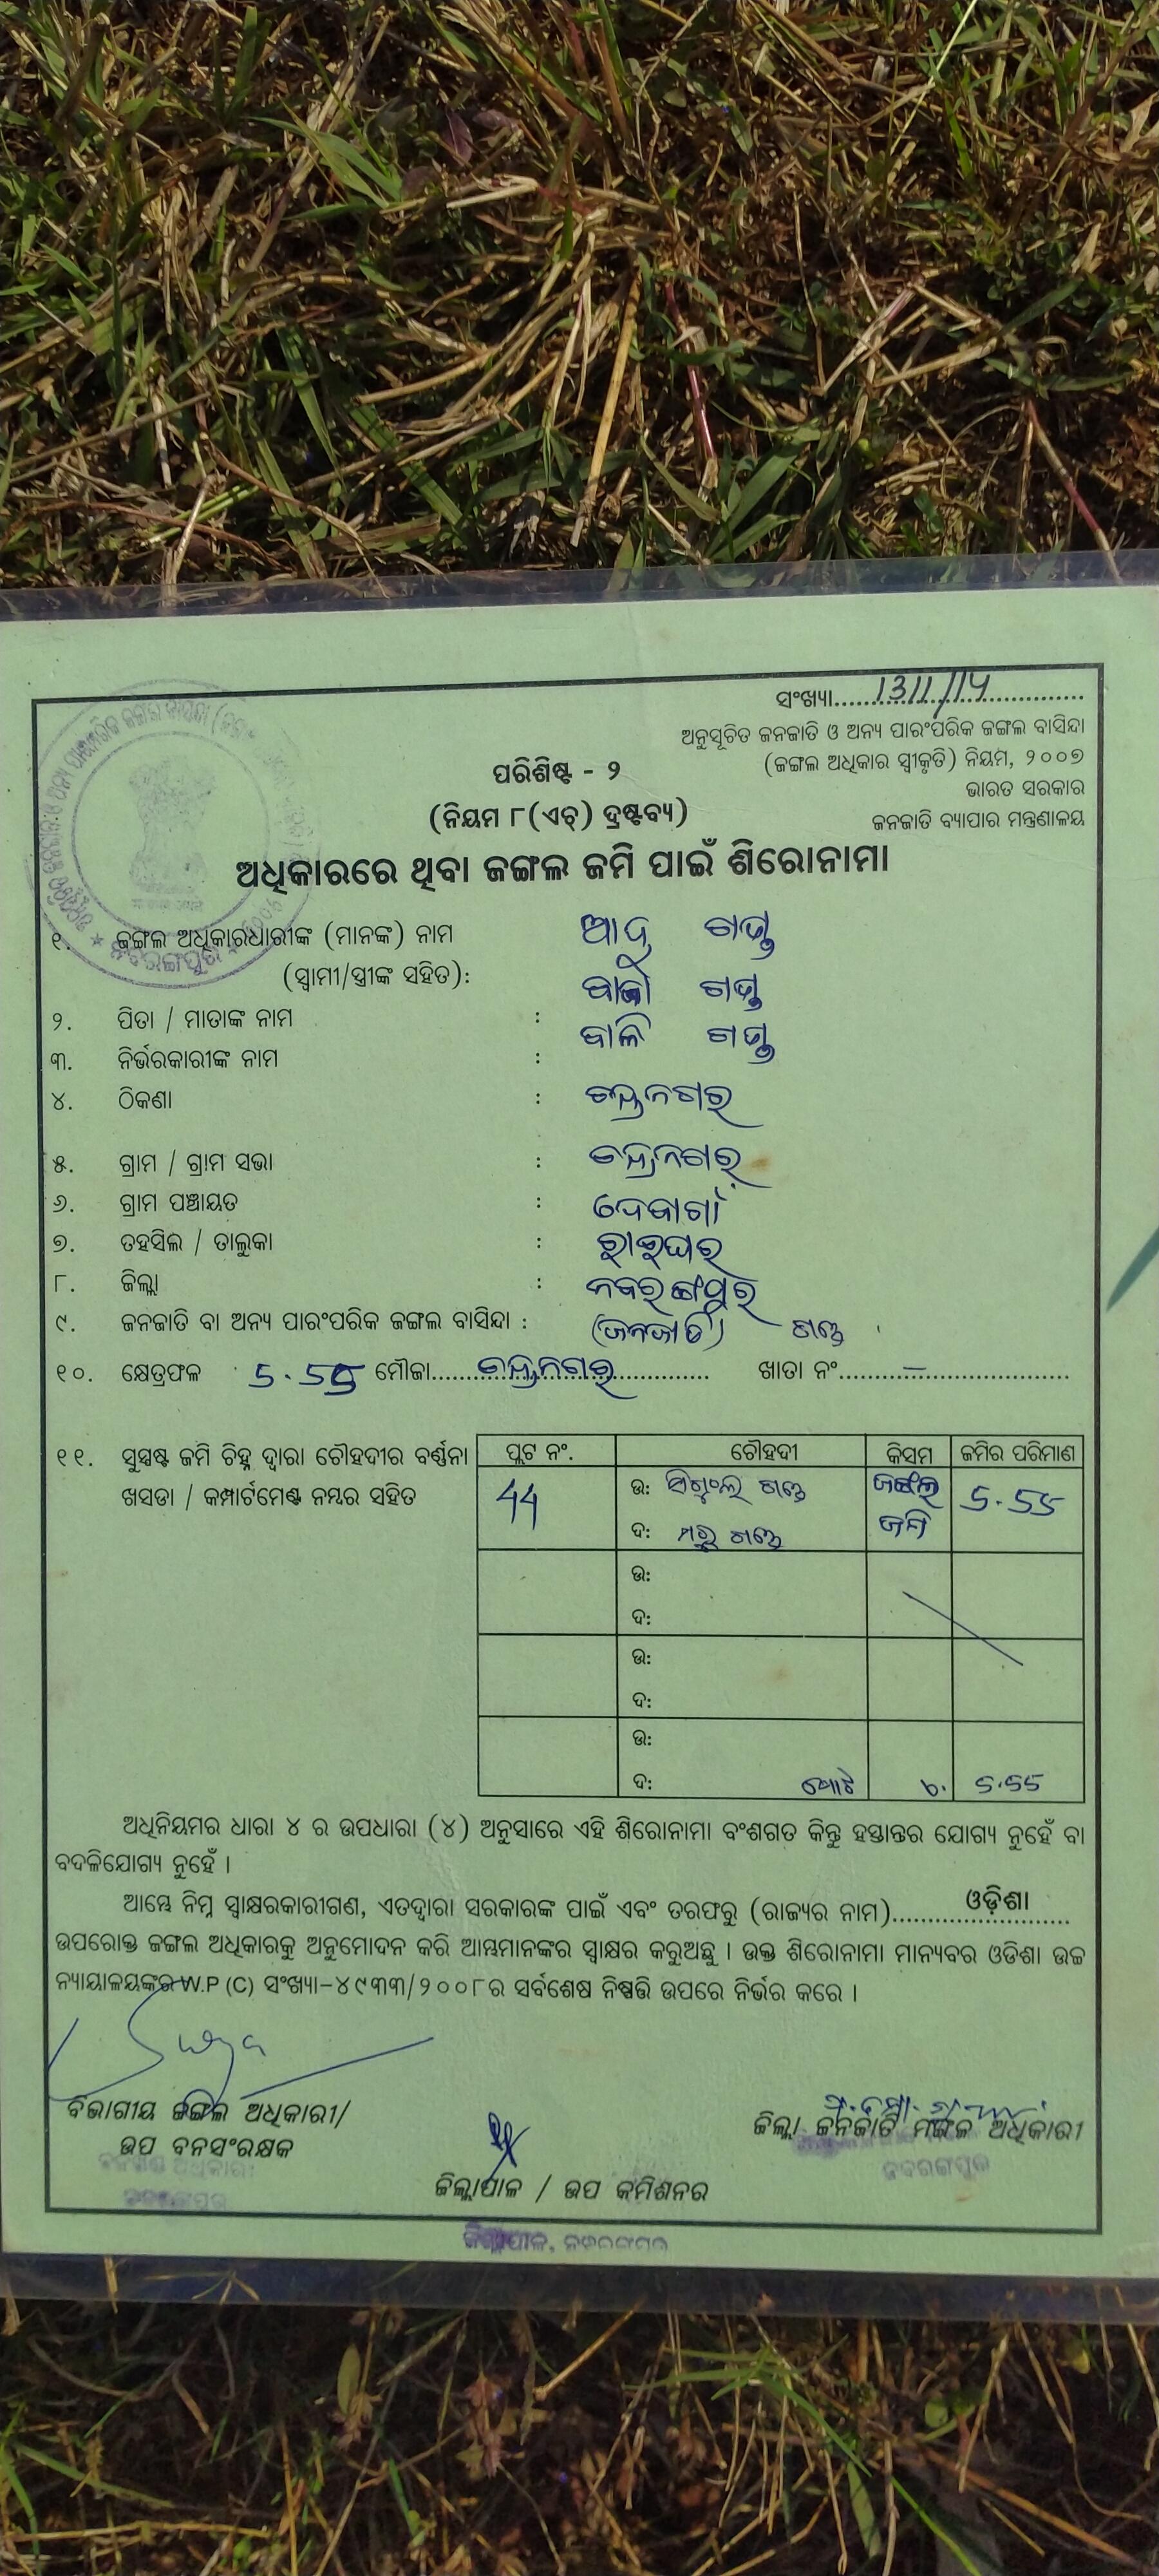 ସଂଖ୍ୟା.....1311/114.....
ଅନୁସୂଚିତ ଜନଜାତି ଓ ଅନ୍ୟ ପାରଂପରିକ ଜଙ୍ଗଲ ବାସିନ୍ଦା
(ଜଙ୍ଗଲ ଅଧିକାର ସ୍ୱୀକୃତି) ନିୟମ, ୨୦୦୭
ଭାରତ ସରକାର
ଜନଜାତି ବ୍ୟାପାର ମନ୍ତ୍ରଣାଳୟ
ପରିଶିଷ୍ଟ - ୨
(ନିୟମ ୮(ଏଚ୍) ଦ୍ରଷ୍ଟବ୍ୟ)
ଅଧିକାରରେ ଥିବା ଜଙ୍ଗଲ ଜମି ପାଇଁ ଶିରୋନାମା
୧. ଜଙ୍ଗଲ ଅଧିକାରଧାରୀଙ୍କ (ମାନଙ୍କ) ନାମ
(ସ୍ୱାମୀ/ସ୍ତ୍ରୀଙ୍କ ସହିତ):
୨. ପିତା / ମାତାଙ୍କ ନାମ :
୩. ନିର୍ଭରକାରୀଙ୍କ ନାମ :
୪. ଠିକଣା : ଚନ୍ଦ୍ରନଗର
୫. ଗ୍ରାମ / ଗ୍ରାମ ସଭା : ଚନ୍ଦ୍ରନଗର
୬. ଗ୍ରାମ ପଞ୍ଚାୟତ :
୭. ତହସିଲ / ତାଲୁକା : ରାଇଘର
୮. ଜିଲ୍ଲା : ନବରଙ୍ଗପୁର
୯. ଜନଜାତି ବା ଅନ୍ୟ ପାରଂପରିକ ଜଙ୍ଗଲ ବାସିନ୍ଦା : (ଜନଜାତି) ଗଣ୍ଡ
୧୦. କ୍ଷେତ୍ରଫଳ 5.55 ମୌଜା.....ଚନ୍ଦ୍ରନଗର..... ଖାତା ନଂ.....–.....
୧୧. ସୁସ୍ପଷ୍ଟ ଜମି ଚିହ୍ନ ଦ୍ୱାରା ଚୌହଦୀର ବର୍ଣ୍ଣନା
ଖସଡା / କମ୍ପାର୍ଟମେଣ୍ଟ ନମ୍ବର ସହିତ
ପ୍ଲଟ ନଂ. ଚୌହଦୀ କିସମ ଜମିର ପରିମାଣ
44 ଉ: ଗଣ୍ଡ ଜଙ୍ଗଲ 5.55
ଦ: ଗଣ୍ଡ ଜମି
ଉ:
ଦ:
ଉ:
ଦ:
ଉ:
ଦ: 5.55
ଅଧିନିୟମର ଧାରା ୪ ର ଉପଧାରା (୪) ଅନୁସାରେ ଏହି ଶିରୋନାମା ବଂଶଗତ କିନ୍ତୁ ହସ୍ତାନ୍ତର ଯୋଗ୍ୟ ନୁହେଁ ବା
ବଦଳିଯୋଗ୍ୟ ନୁହେଁ ।
ଆମ୍ଭେ ନିମ୍ନ ସ୍ୱାକ୍ଷରକାରୀଗଣ, ଏତଦ୍ୱାରା ସରକାରଙ୍କ ପାଇଁ ଏବଂ ତରଫରୁ (ରାଜ୍ୟର ନାମ).....ଓଡ଼ିଶା.....
ଉପରୋକ୍ତ ଜଙ୍ଗଲ ଅଧିକାରକୁ ଅନୁମୋଦନ କରି ଆମ୍ଭମାନଙ୍କର ସ୍ୱାକ୍ଷର କରୁଅଛୁ । ଉକ୍ତ ଶିରୋନାମା ମାନ୍ୟବର ଓଡିଶା ଉଚ୍ଚ
ନ୍ୟାୟାଳୟଙ୍କର W.P (C) ସଂଖ୍ୟା-୪୯୩୩/୨୦୦୮ର ସର୍ବଶେଷ ନିଷ୍ପତ୍ତି ଉପରେ ନିର୍ଭର କରେ ।
ବିଭାଗୀୟ ଜଙ୍ଗଲ ଅଧିକାରୀ/
ଉପ ବନସଂରକ୍ଷକ
ଜିଲ୍ଲା ଜନଜାତି ମଙ୍ଗଳ ଅଧିକାରୀ
ନବରଙ୍ଗପୁର
ଜିଲ୍ଲାପାଳ / ଉପ କମିଶନର
ଜିଲ୍ଲାପାଳ, ନବରଙ୍ଗପୁର